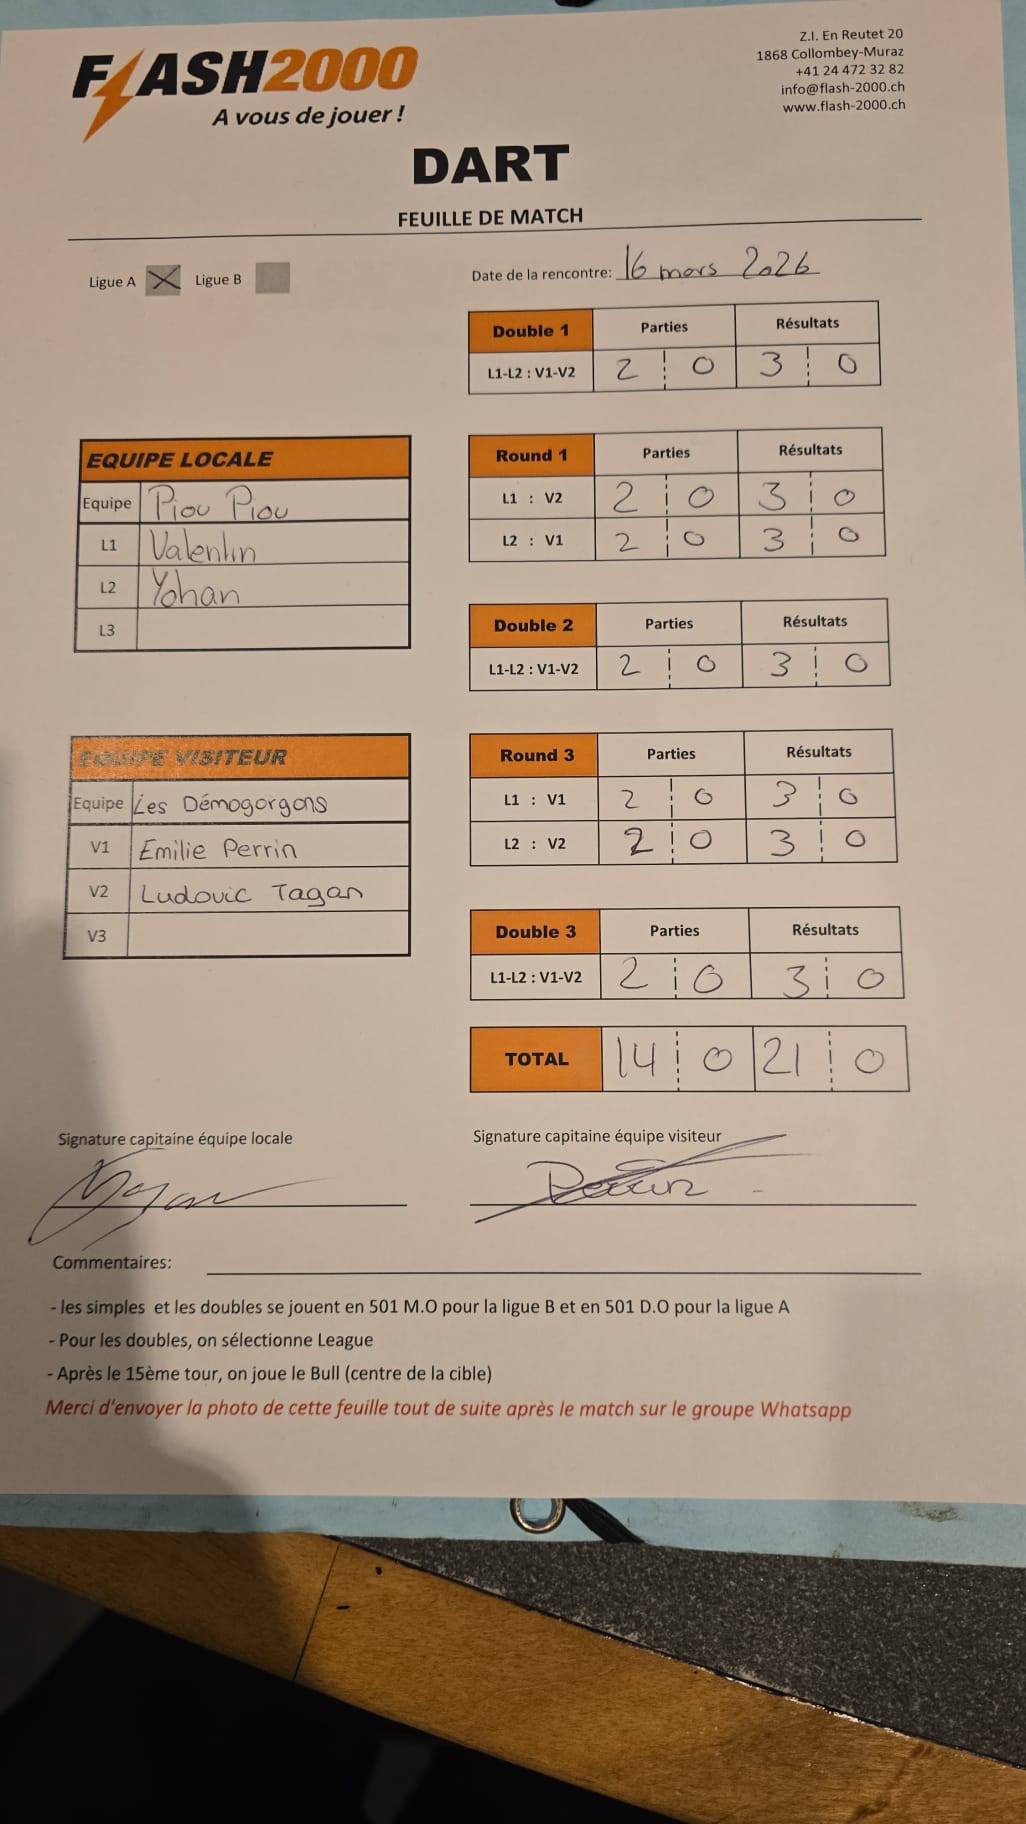 FLASH2000
A vous de jouer !
Z.I. En Reutet 20
1868 Collombey-Muraz
+41 24 472 32 82
info@flash-2000.ch
www.flash-2000.ch
DART
FEUILLE DE MATCH
Ligue A X Ligue B
Date de la rencontre: 16 mars 2026
Double 1 Parties Résultats
L1-L2 : V1-V2 2 0 3 0
EQUIPE LOCALE
Equipe Piou Piou
L1 Valentin
L2 Yohan
L3
Round 1 Parties Résultats
L1 : V2 2 0 3 0
L2 : V1 2 0 3 0
Double 2 Parties Résultats
L1-L2 : V1-V2 2 0 3 0
EQUIPE VISITEUR
Equipe Les Démogorgons
V1 Emilie Perrin
V2 Ludovic Tagan
V3
Round 3 Parties Résultats
L1 : V1 2 0 3 0
L2 : V2 2 0 3 0
Double 3 Parties Résultats
L1-L2 : V1-V2 2 0 3 0
TOTAL 14 0 21 0
Signature capitaine équipe locale
Signature capitaine équipe visiteur
Perrin
Commentaires:
- les simples et les doubles se jouent en 501 M.O pour la ligue B et en 501 D.O pour la ligue A
- Pour les doubles, on sélectionne League
- Après le 15ème tour, on joue le Bull (centre de la cible)
Merci d'envoyer la photo de cette feuille tout de suite après le match sur le groupe Whatsapp